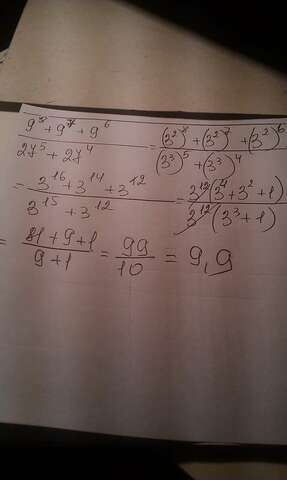 (9^8 + 9^7 + 9^6)/(27^5 + 27^4) = ((3^2)^8 + (3^2)^7 + (3^2)^6)/((3^3)^5 + (3^3)^4)
= (3^16 + 3^14 + 3^12)/(3^15 + 3^12) = (3^12(3^4 + 3^2 + 1))/(3^12(3^3 + 1))
= (81 + 9 + 1)/(9 + 1) = 99/10 = 9,9